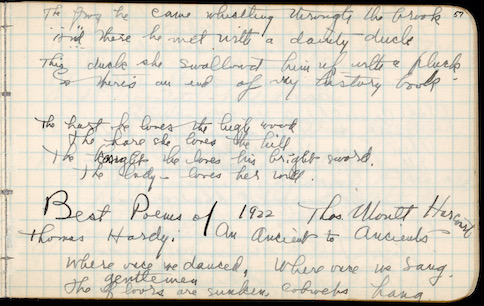 The frog he came whistling through the brook 57
And there he met with a dainty duck
This duck she swallowd him up with a pluck
So there's an end of my history book -
The hart he loves the high wood
The hare she loves the hill
The knight he loves his bright sword.
The lady - loves her will.
Best Poems of 1922 Thos. Moult Harcourt
Thomas Hardy. An Ancient to Ancients
Where once we danced, Where once we sang.
gentlemen
The floors are sunken cobwebs hang